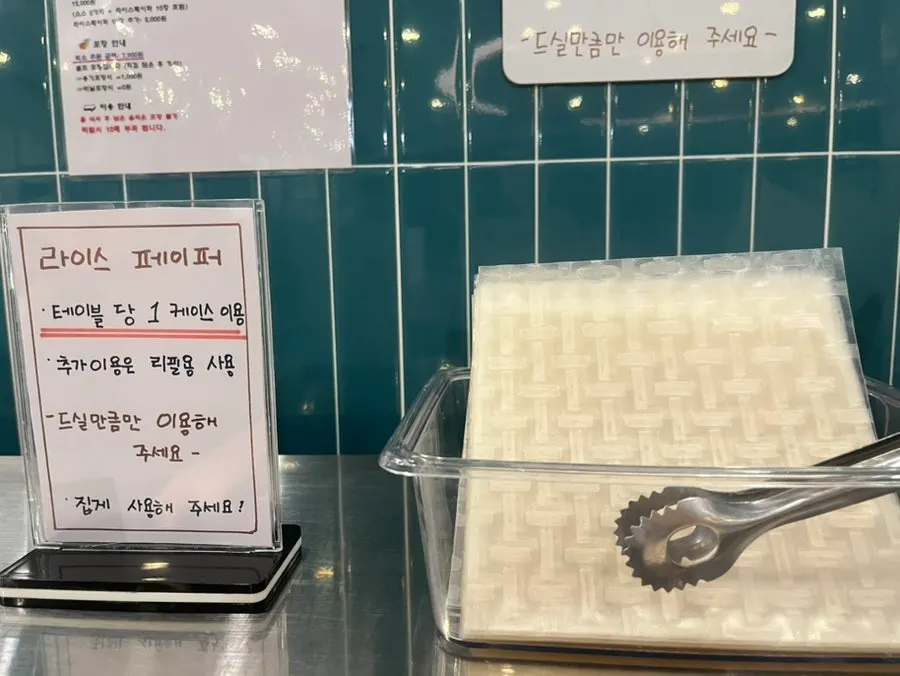 15,000원
라이스페이퍼 10장 추가: 3,000원
포장 안내
=용기포장시 =1,000원
=비닐포장시 =0원
이용 안내
-드실만큼만 이용해 주세요-
라이스 페이퍼
· 테이블 당 1 케이스 이용
· 추가이용은 리필용 사용
-드실만큼만 이용해
주세요-
· 집게 사용해 주세요!